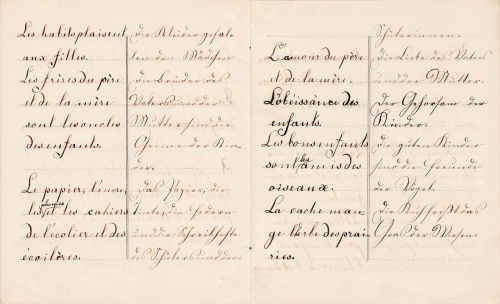 Les habits plaisent
aux filles.
Les frères du père
et de la mère
sont les oncles
des enfants.
Le papier, l'encre,
plumes
les et les cahiers
de l'écolier et des
écolières.
Die Kleider gefal-
len den Mädchen
Die Brüder des
Vaters und der
Mutter sind die
der Kin-
der.
Das Papier, die
Tinte, die Federn
und die Schreibhefte
des Schülers und der
L'amour du père
et de la mère.
L'obéissance des
enfants.
Les bons enfants
sont les amis des
oiseaux.
La vache man-
ge l'herbe des prai-
ries.
Schülerinnen.
Die Liebe des Vaters
und der Mutter.
Der Gehorsam der
Kinder.
Die guten Kinder
sind die Freunde
der Vögel.
Die Kuh frißt das
Gras der Wiesen.